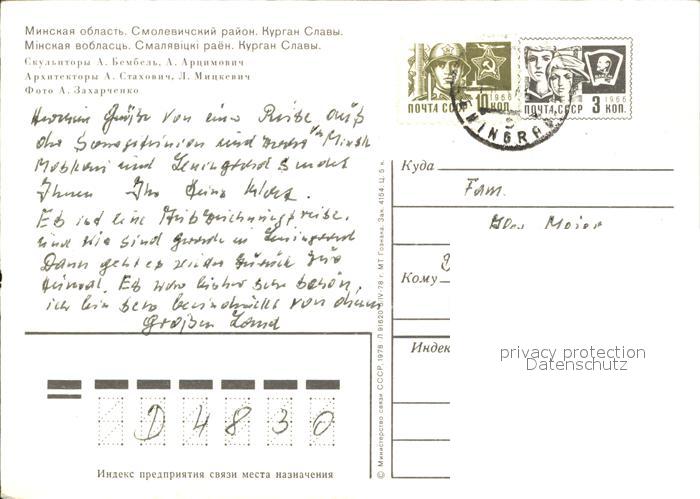 Минская область. Смолевичский район. Курган Славы.
Мінская вобласць. Смалявіцкі раён. Курган Славы.
Скульпторы А. Бембель, А. Арцимович
Архитекторы А. Стахович, Л. Мицкевич
Фото А. Захарченко
ПОЧТА СССР 10 КОП. 1966
ПОЧТА СССР 3 КОП. 1966
ВЛКСМ
LENINGRAD
Herzliche Grüße von einer Reise auß
der Sowjetunion und zwar Minsk
Moskau und Leningrad sendet
Ihnen Ihr Heinz
Es ist eine Auszeichnungsreise.
und wir sind gerade in Leningrad
Dann geht es wieder zurück zur
Heimat. Es war bisher sehr schön,
ich bin sehr beeindruckt von diesem
Großen Land
Куда
Fam.
Maier
Кому
Индек
privacy protection
Datenschutz
D 4 8 3 0
Индекс предприятия связи места назначения
© Министерство связи СССР, 1978 Л 91620 IV-78 г. МТ Гознака. Зак. 4154. Ц. 5 к.